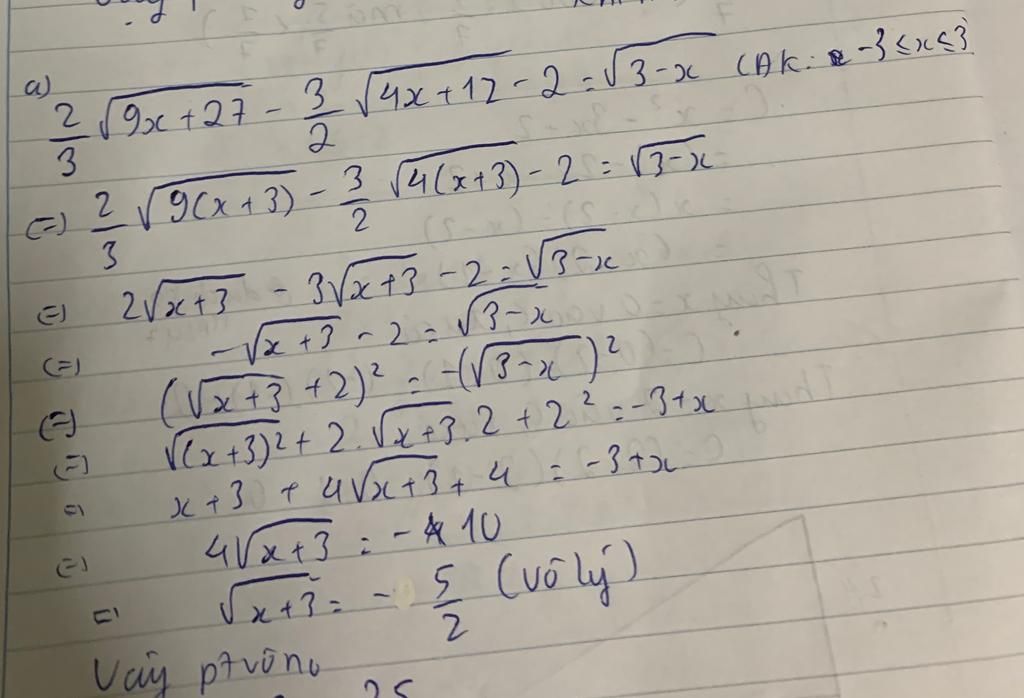 a)
2/3 √(9x+27) - 3/2 √(4x+12) - 2 = √(3-x) (ĐK: -3 ≤ x ≤ 3
(=) 2/3 √(9(x+3)) - 3/2 √(4(x+3)) - 2 = √(3-x)
(=) 2√(x+3) - 3√(x+3) - 2 = √(3-x)
(=) -√(x+3) - 2 = √(3-x)
(=) (√(x+3) + 2)² = -(√(3-x))²
(=) √(x+3)² + 2.√(x+3).2 + 2² = -3+x
(=) x+3 + 4√(x+3) + 4 = -3+x
(=) 4√(x+3) = -10
(=) √(x+3) = - 5/2 (vô lý)
Vậy ptvônо